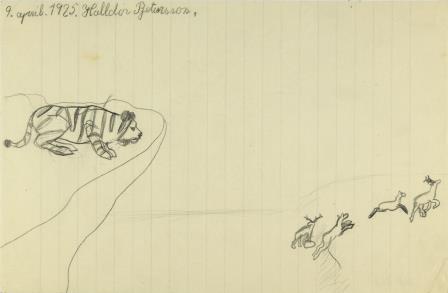 9. apríl. 1925. Halldór Pjetursson.